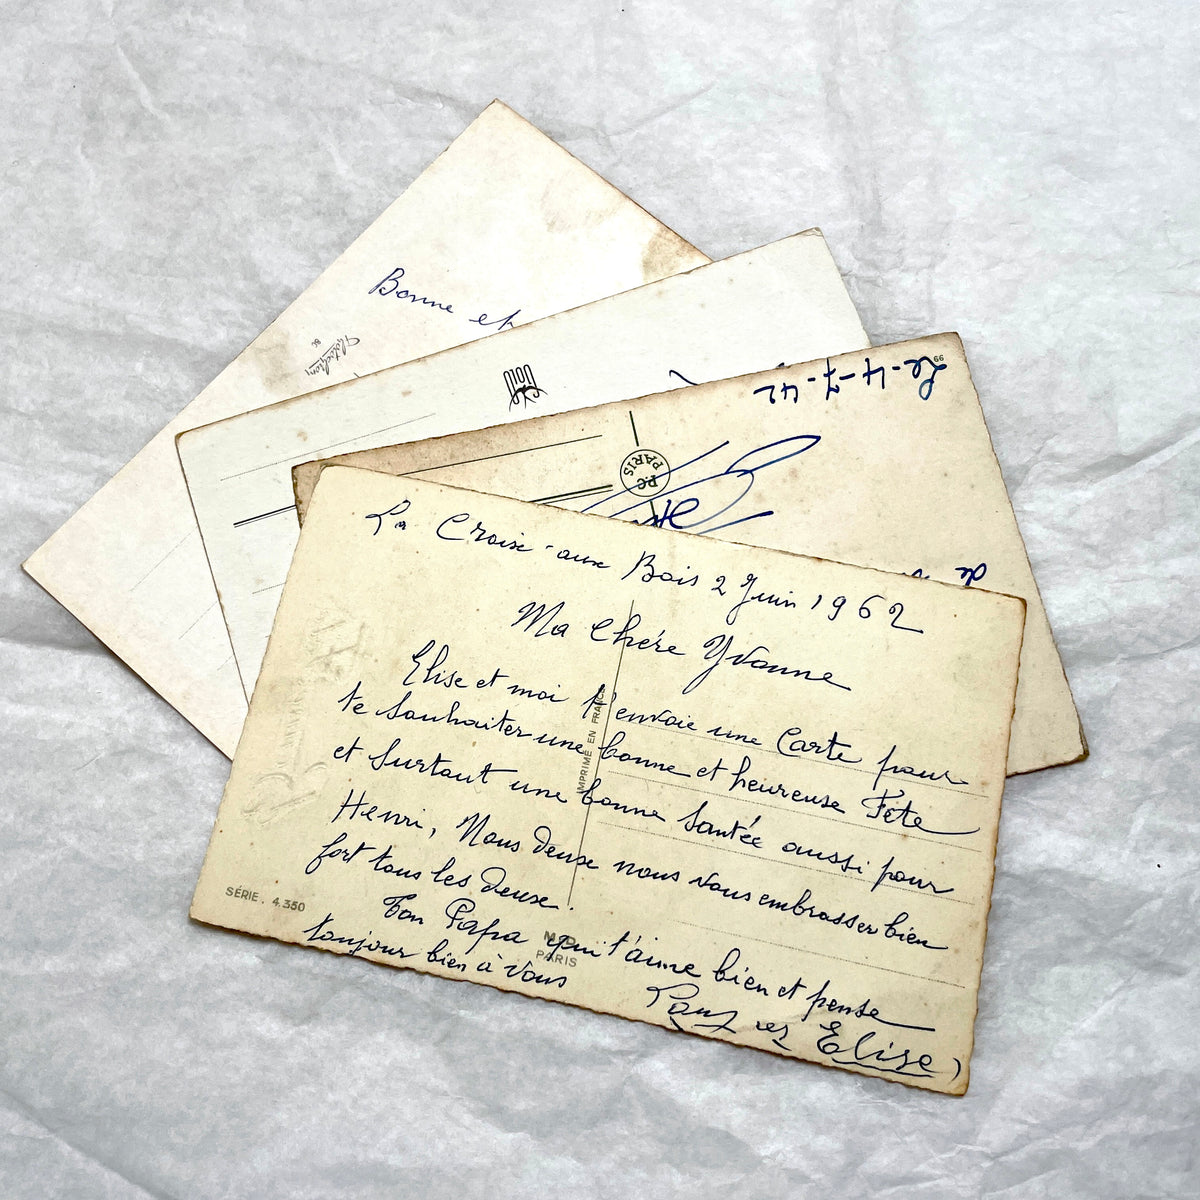 Bonne et
Le-4-7-42
99
P.C
PARIS
de
La Croix-aux Bois 2 Juin 1962
Ma Chère Yvonne
Elise et moi t'envoie une Carte pour
te Souhaiter une bonne et heureuse Fête
et Surtout une bonne Santée aussi pour
Henri, Nous Deux nous vous embrasser bien
fort tous les Deux.
Ton Papa qui t'aime bien et pense
toujour bien à Vous
Elise
IMPRIMÉ EN FRANCE
SÉRIE . 4.350
M.D.
PARIS